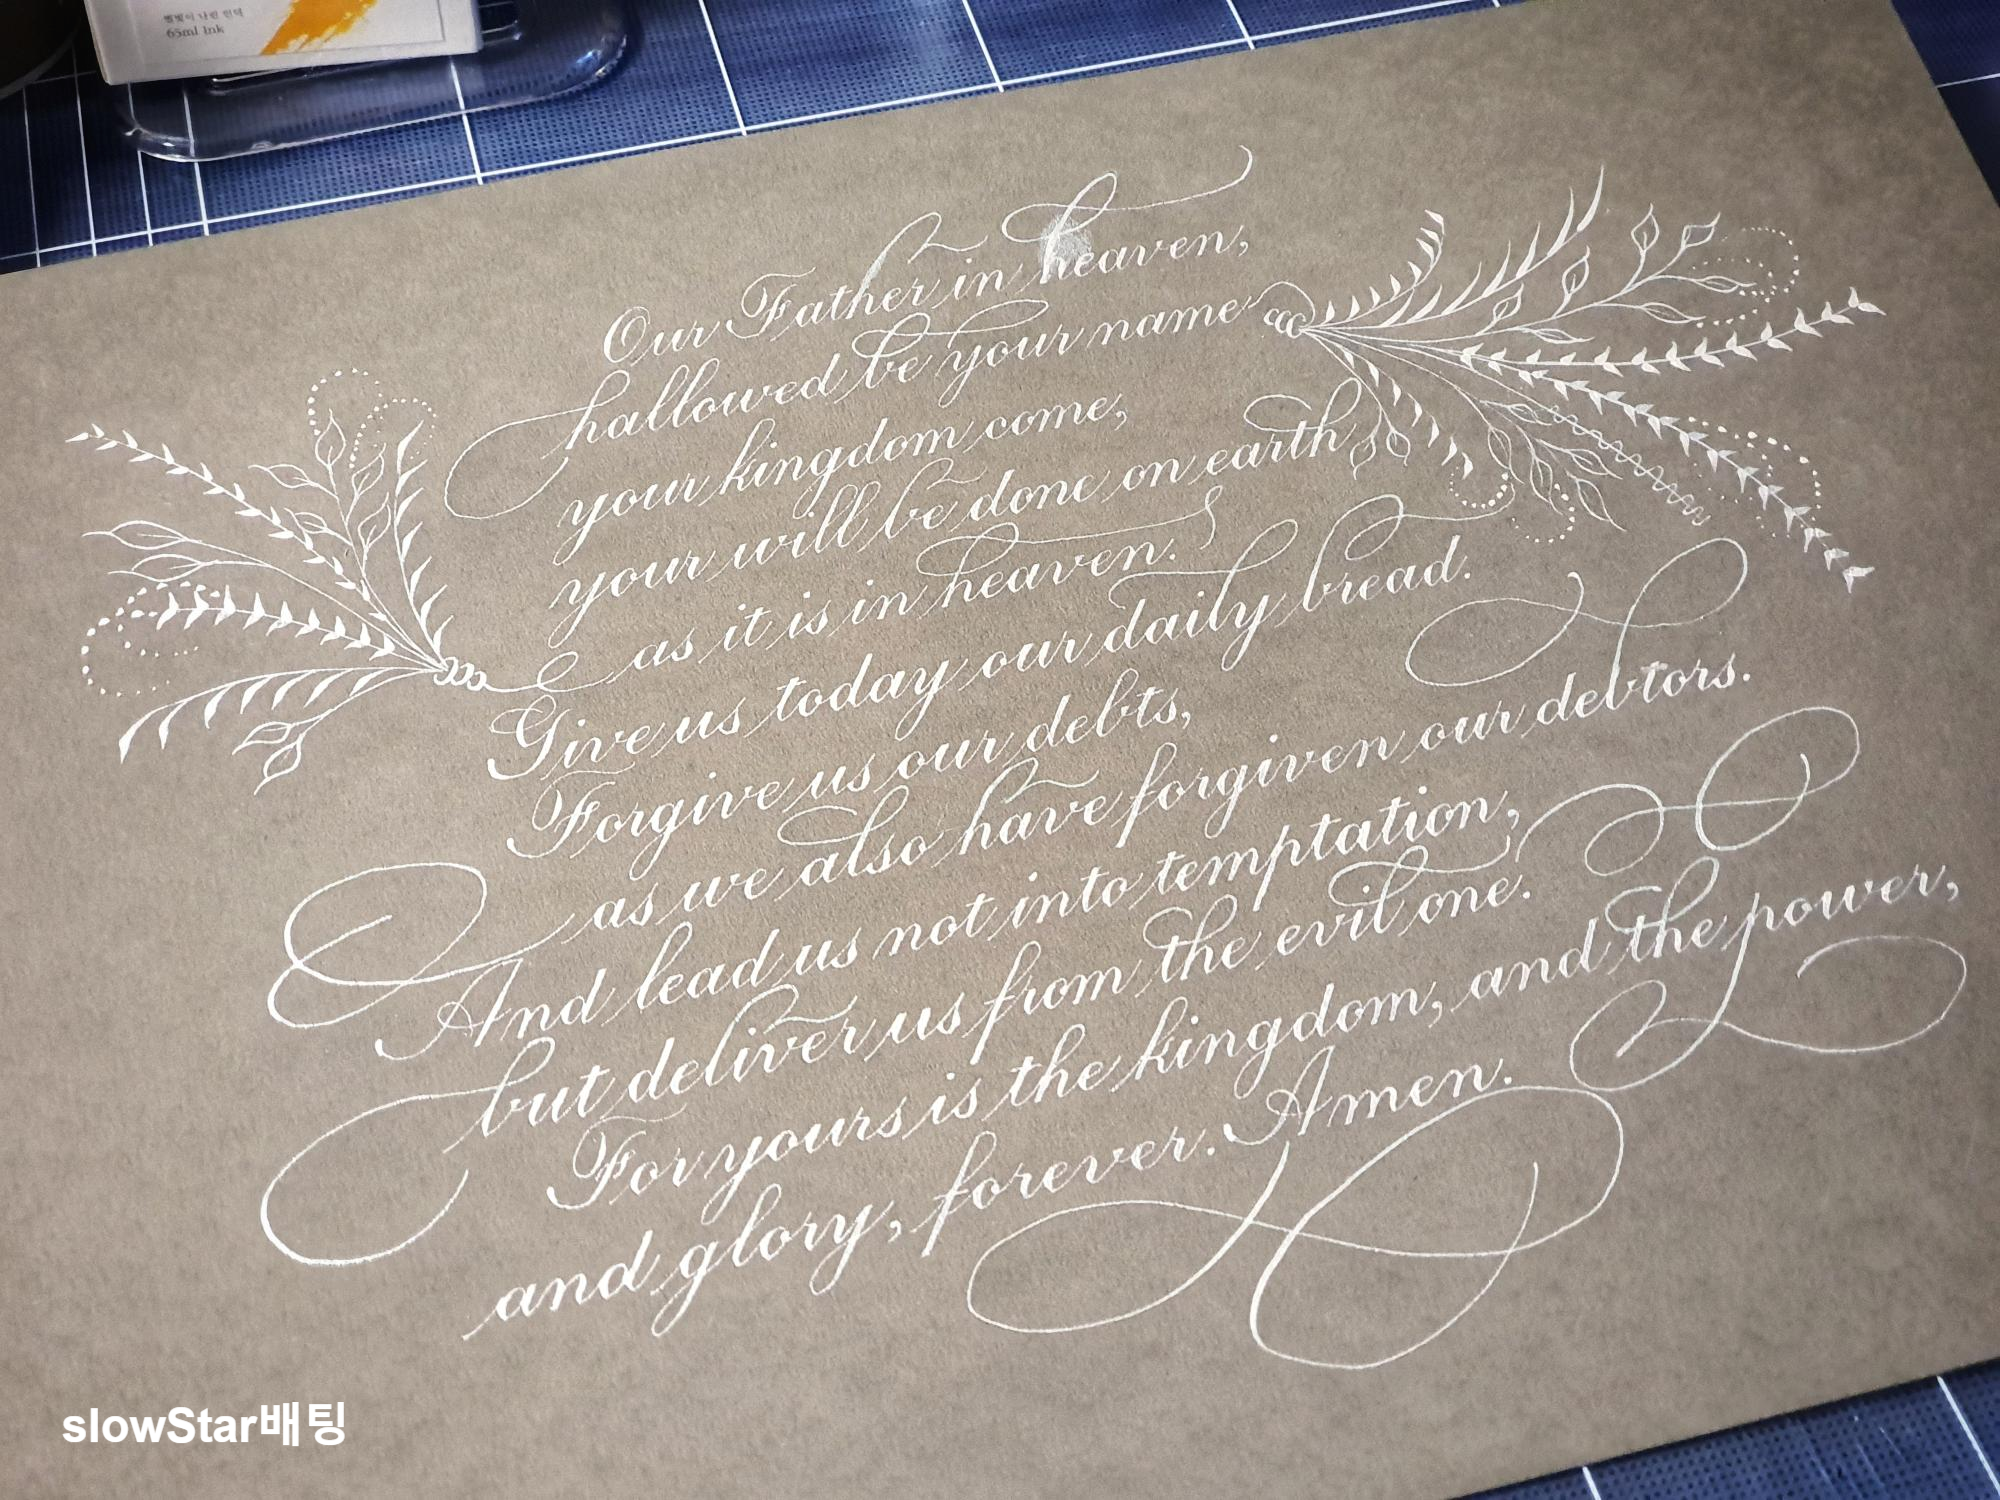 별빛이 나린 언덕
65ml Ink
Our Father in heaven,
hallowed be your name
your kingdom come,
your will be done on earth
as it is in heaven.
Give us today our daily bread.
Forgive us our debts,
as we also have forgiven our debtors.
And lead us not into temptation,
but deliver us from the evil one.
For yours is the kingdom, and the power,
and glory, forever. Amen.
slowStar배팅